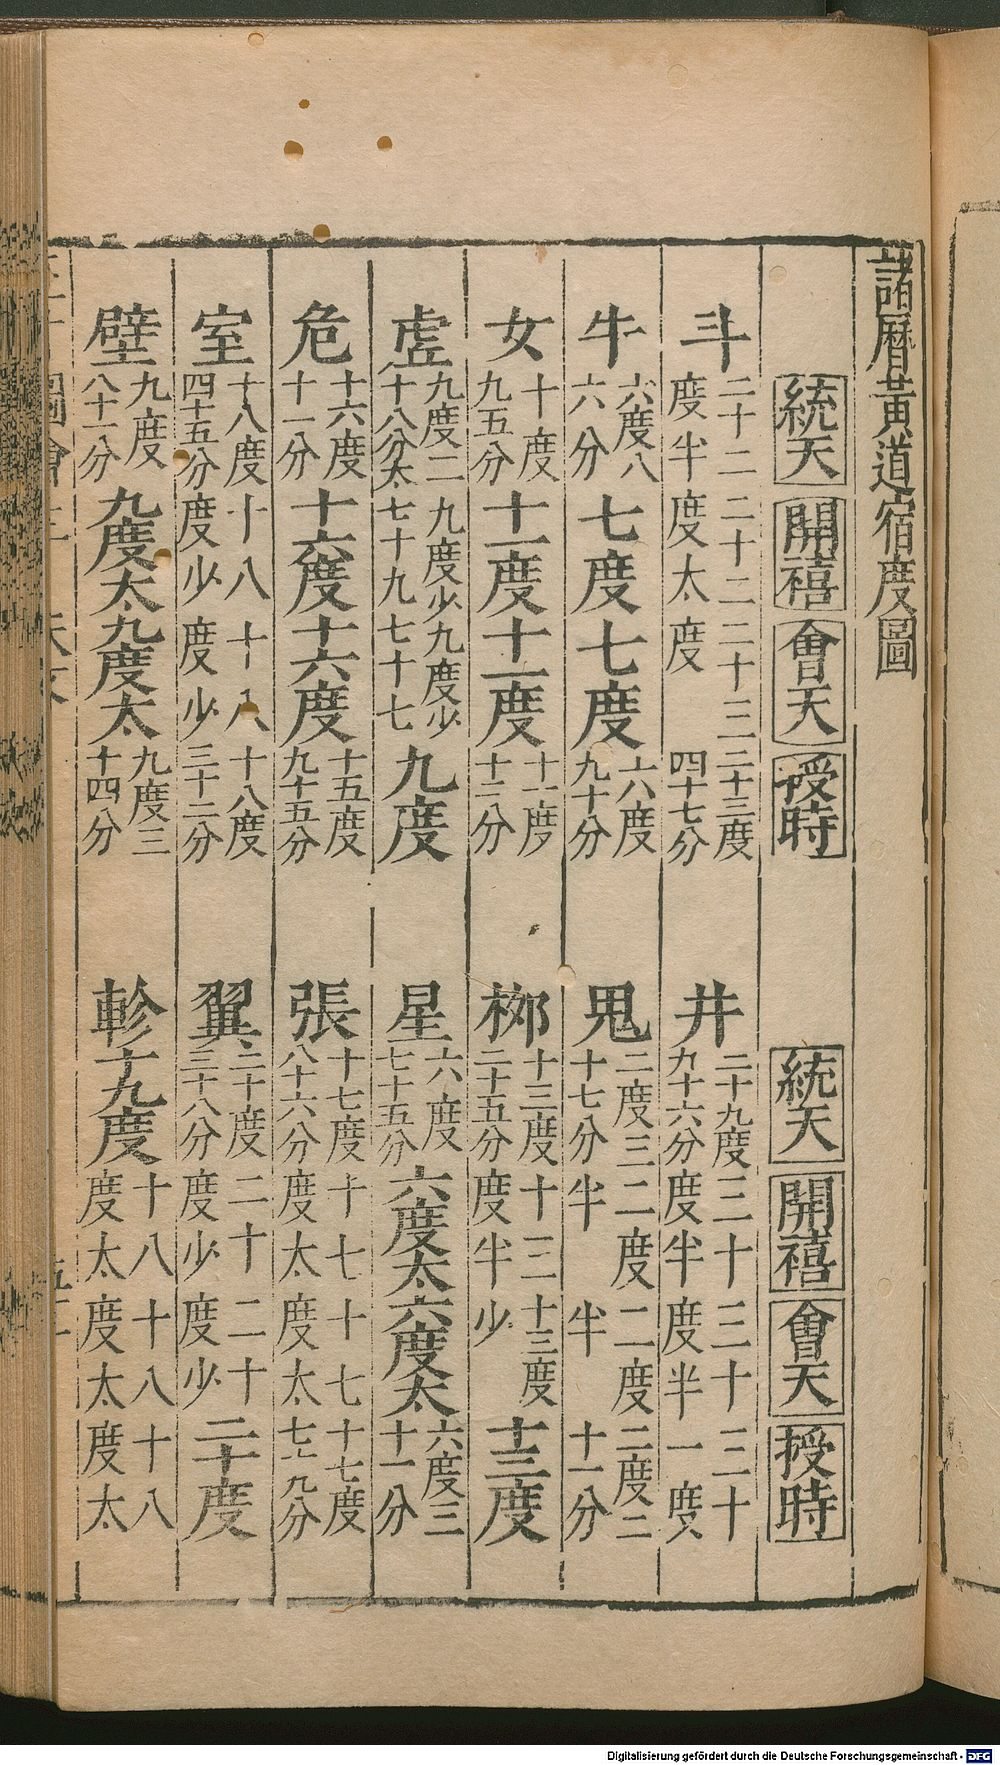 諸曆黃道宿度圖
統天 開禧 會天 授時
斗 二十二度半 二十二度太 二十三度 二十三度四十七分
牛 六度八六分 七度 七度 六度九十分
女 十度九五分 十一度 十一度 十一度十二分
虛 九度二十八分太 九度少七十九 九度少七十七 九度
危 十六度十一分 十六度 十六度 十五度九十五分
室 十八度四十五分 十八度少 十八度少 十八度三十二分
壁 九度八十一分 九度太 九度太 九度三十四分
統天 開禧 會天 授時
井 二十九度九十六分 三十度半 三十度半 三十一度
鬼 二度三十七分 二度半 二度半 二度二十一分
桺 十三度二十五分 十三度半 十三度少 十三度
星 六度七十五分 六度太 六度太 六度三十一分
張 十七度八十六分 十七度太 十七度太 十七度七十九分
翼 二十度三十八分 二十度少 二十度少 二十度
軫 十九度 十八度太 十八度太 十八度太
Digitalisierung gefördert durch die Deutsche Forschungsgemeinschaft - DFG